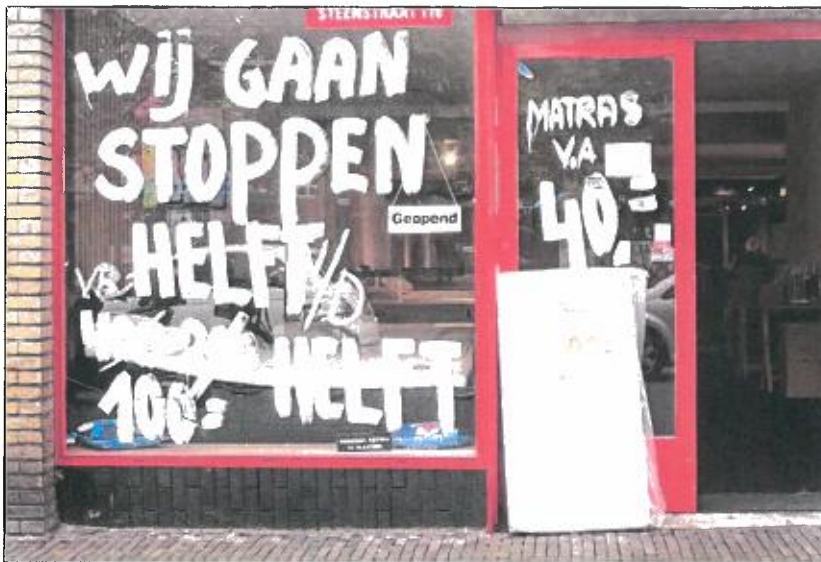 STEENSTRAAT 111
WIJ GAAN
STOPPEN
Geopend
HELFT/D
HELFT
100=
MATRAS
V.A
40=